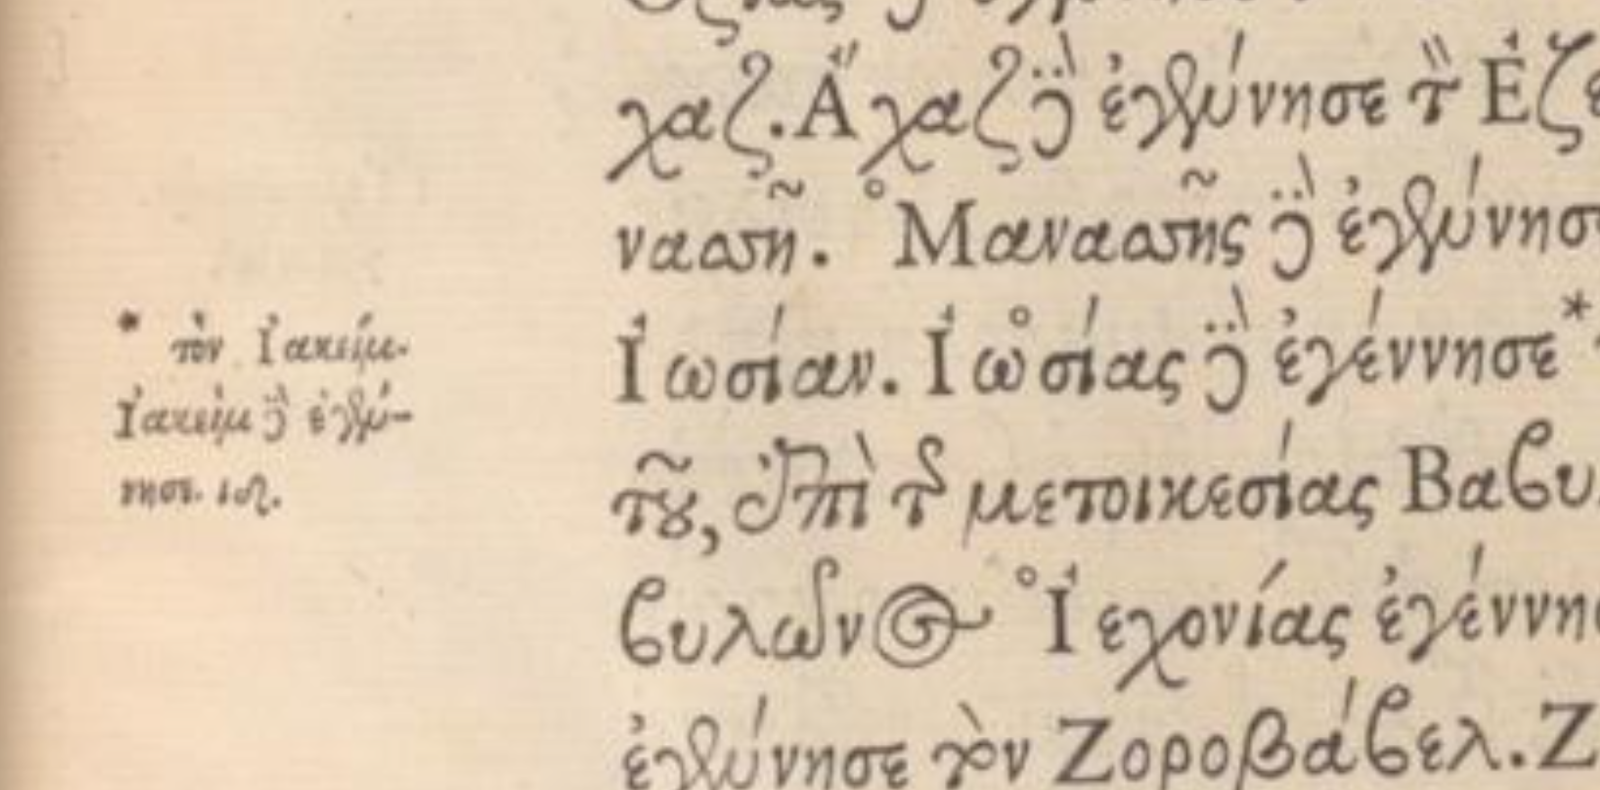 χαζ. Ἄχαζ δὲ ἐγέννησε τὸν Ἐζε
νασσῆ. Μανασσῆς δὲ ἐγέννησ
Ἰωσίαν. Ἰωσίας δὲ ἐγέννησε*
τοῦ, ἐπὶ τῆς μετοικεσίας Βαβυ
βυλῶνος Ἰεχονίας ἐγέννη
ἐγέννησε τὸν Ζοροβάβελ. Ζ
* τὸν Ἰακείμ.
Ἰακεὶμ δὲ ἐγέν-
νησε.